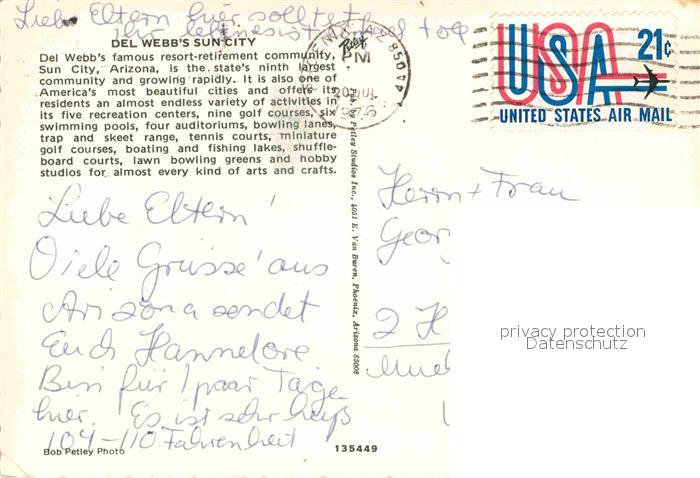 Liebe Eltern hier solltet
Ihr
DEL WEBB'S SUN CITY
Del Webb's famous resort-retirement community,
Sun City, Arizona, is the state's ninth largest
community and growing rapidly. It is also one of
America's most beautiful cities and offers its
residents an almost endless variety of activities in
its five recreation centers, nine golf courses, six
swimming pools, four auditoriums, bowling lanes,
trap and skeet range, tennis courts, miniature
golf courses, boating and fishing lakes, shuffle-
board courts, lawn bowling greens and hobby
studios for almost every kind of arts and crafts.
Liebe Eltern!
Viele Grüsse aus
Arizona sendet
Euch Hannelore
Bin für 1 paar Tage
hier. Es ist sehr heiß
104–110 Fahrenheit
Bob Petley Photo
135449
Petley
Pub. by Petley Studios Inc., 4051 E. Van Buren, Phoenix, Arizona 85008
PM
20 JUL
1976
850
USA 21¢
UNITED STATES AIR MAIL
Herrn + Frau
Georg
2 H
privacy protection
Datenschutz